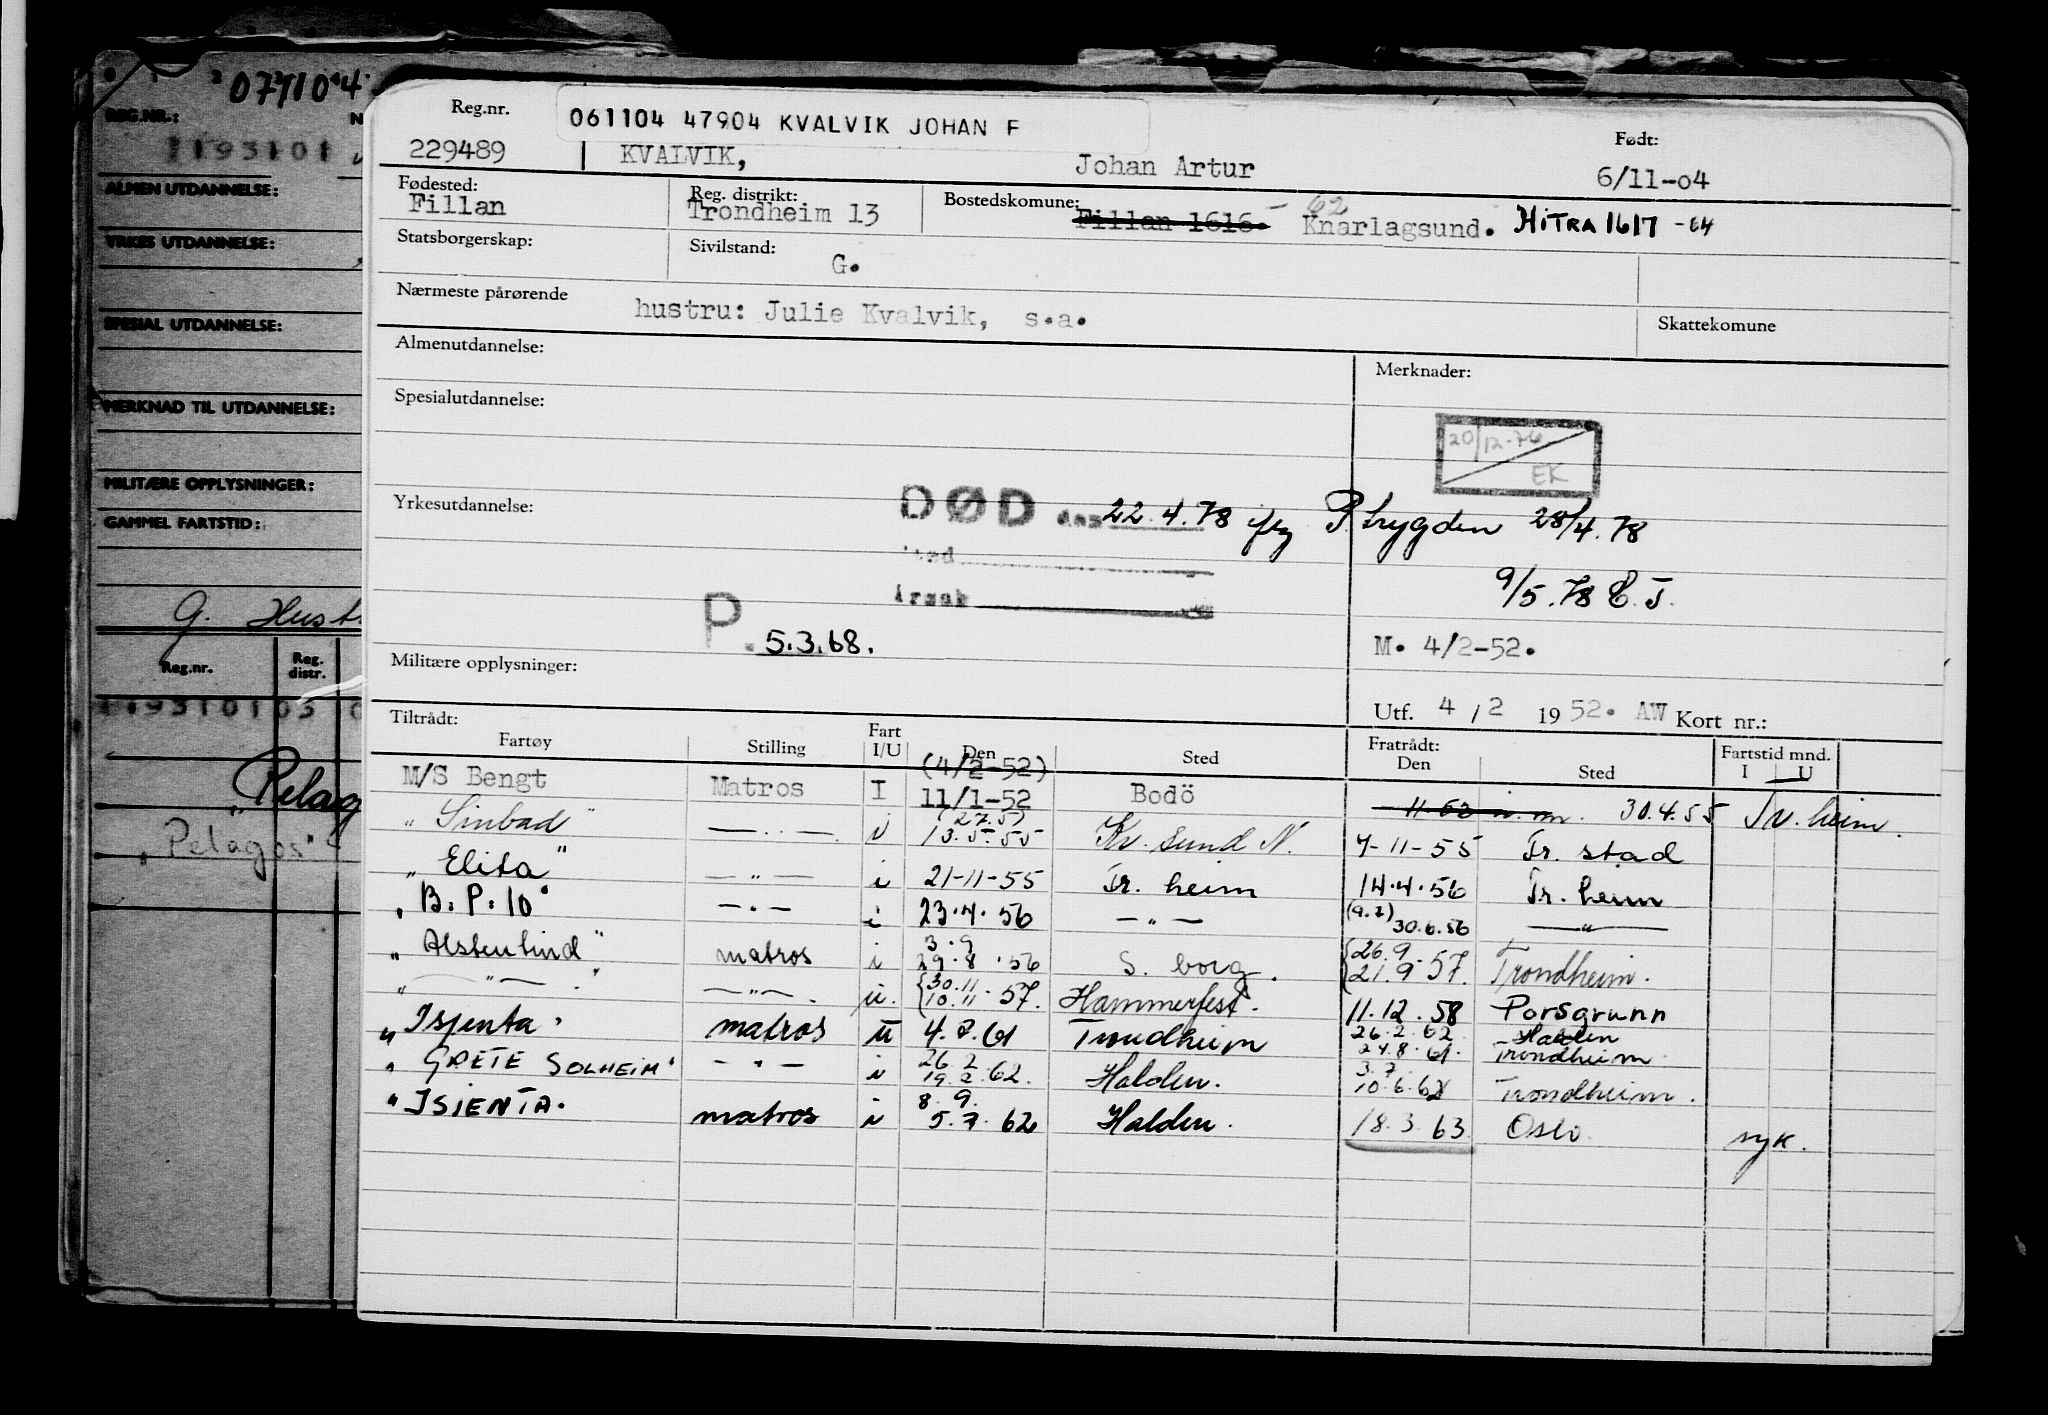 071104
REG.NR.:
N
1193101
ALMEN UTDANNELSE:
YRKES UTDANNELSE:
SPESIAL UTDANNELSE:
MERKNAD TIL UTDANNELSE:
MILITÆRE OPPLYSNINGER:
GAMMEL FARTSTID:
G. Hust
Reg.nr. Reg. distr.
"Pelag
"Pelagos"
Reg.nr. 061104 47904 KVALVIK JOHAN F Født:
229489 KVALVIK, Johan Artur 6/11-04
Fødested: Reg. distrikt: Bostedskomune:
Fillan Trondheim 13 Fillan 1616. - 62 Knarlagsund. HITRA 1617 -64
Statsborgerskap: Sivilstand: G.
Nærmeste pårørende hustru: Julie Kvalvik, s.a. Skattekomune
Almenutdannelse: Merknader:
Spesialutdannelse:
20/12-76
EK
Yrkesutdannelse: DØD den 22.4.78 ifg P.trygden 28/4.78
sted
årsak 9/5.78 E.J.
P. 5.3.68. M. 4/2-52.
Militære opplysninger:
Utf. 4/2 1952. AW Kort nr.:
Tiltrådt: Fratrådt:
Fartøy Stilling Fart I/U Den Sted Den Sted Fartstid mnd. I U
(4/2-52)
M/S Bengt Matros I 11/1-52 Bodö 30.4.55 Tr.heim.
" Sinbad" — " — i (27.5) 13.5.55 Kr. sund N. 7-11-55 Fr. stad
" Elita" — " — i 21-11-55 Tr. heim 14.4.56 Tr. heim
" B.P.10" — " — i 23.4.56 — " — (9.7) 30.6.56 — " —
" Alstentind" matros i 3.9 29.8.56 S. borg. {26.9 21.9.57. Trondheim.
" — " — " — " — u. {30.11 10.11.57. Hammerfest. 11.12.58 Porsgrunn
" Isjenta" matros u 4.7.61 Trondheim 26.2.62 Halden
24.8.61. Trondheim
" GRETE SOLHEIM" — " — i 26.2 19.2.62. Halden. 3.7. 10.6.62 Trondheim.
" ISJENTA. matros i 8.9. 5.7.62 Halden. 18.3.63 Oslo syk.